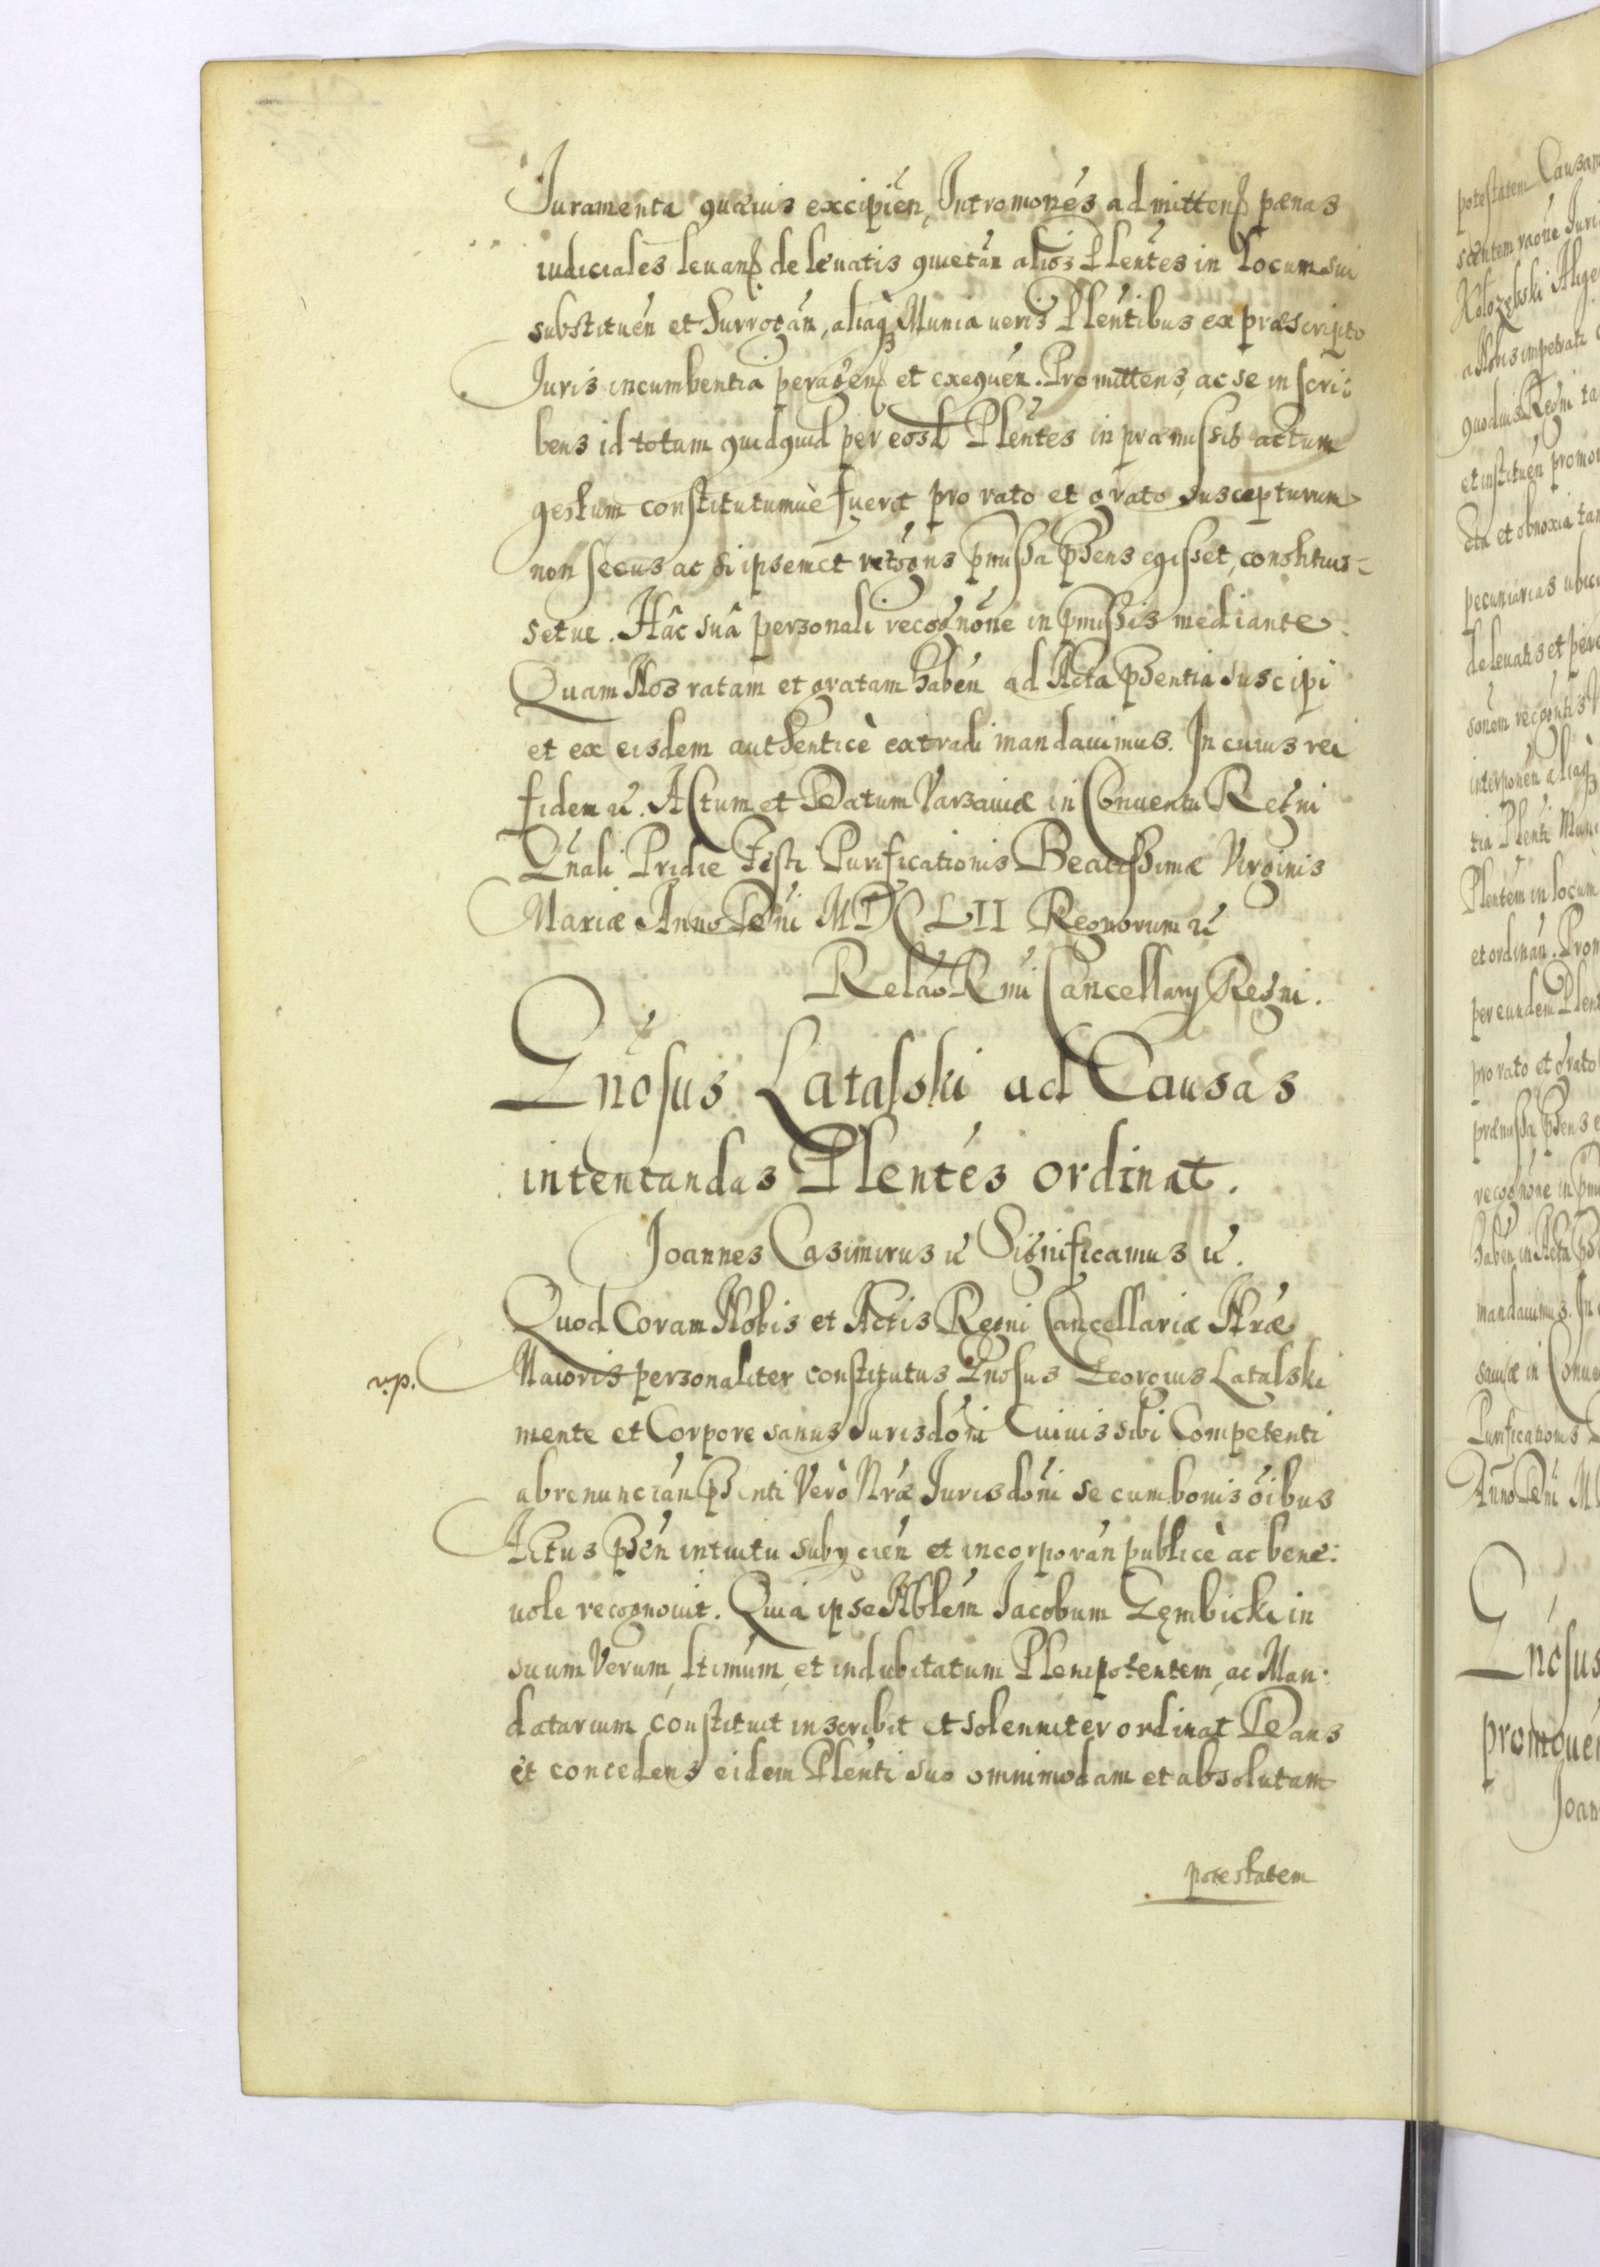 Juramenta quævis excipien̄, Intromon̄es admitten̄ pænas
iudiciales levan̄ de levatis quietan̄ alios Plen̄tes in locum sui
substituen̄ et surrogan̄, aliaq̨ Munia veris Plen̄tibus ex præscripto
Juris incumbentia peragen̄ et exequen̄. Promittens, ac se inscri:
bens id totum quidquid per eosd Plen̄tes in præmissis actum
gestum constitutumuè fuerit pro rato et grato suscepturum
non secus ac si ipsemet recogn̄s pmissa pn̄s egisset, constituis=
setue. Hâc suâ personali recogn̄one in pmissis mediante.
Quam Nos ratam et gratam haben̄ ad Acta pn̄tia suscipi
et ex eisdem authenticè extradi mandavimus. In cuius rei
fidem &. Actum et Datum Varsaviæ in Conventu Regni
Gn̄ali Pridie Festi Purificationis Beatissimæ Virginis
Mariæ Anno Dn̄i MDCLII Regnorum &
Relāo Rm̄i Cancellarij Regni.
Gn̄osus Latalski ad Causas
intentandas Plen̄tes ordinat.
Joannes Casimirus & Significamus &.
Quod Coram Nobis et Actis Regni Cancellariæ Nr̄æ
r.p. Maioris personaliter constitutus Gn̄osus Georgius Latalski
mente et Corpore sanus Jurisdōni Cuivis sibi Competenti
abrenuncian̄ pn̄ti Verò Nr̄æ Jurisdōni se cum bonis ōibus
Actus pn̄ intuitu subijcien̄ et incorporan̄ publicè ac bene:
uole recognovit. Quia ipse Nblem̄ Jacobum Zęmbicki in
suum Verum, ltimūm, et indubitatum Plenipotentem, ac Man:
datarium constituit inscribit et solenniter ordinat Dans
et concedens eidem Plen̄ti suo omnimodam et absolutam
potestatem
potestatem Causam
Kołozębski
a Nobis impetrati
quodvis Regni
et instituen̄
et obnoxia
pecuniarias
de levatis et
interponen̄ aliaq̨
tia Plen̄ti
Plen̄tem in locum
et ordinan̄.
per eundem
pro rato et grato
præmissa pn̄s
recogn̄one in
haben̄ in Acta
mandavimus. In
saviæ in
Purificationis
Anno Dn̄i
Gn̄osus
promoven̄
Joan